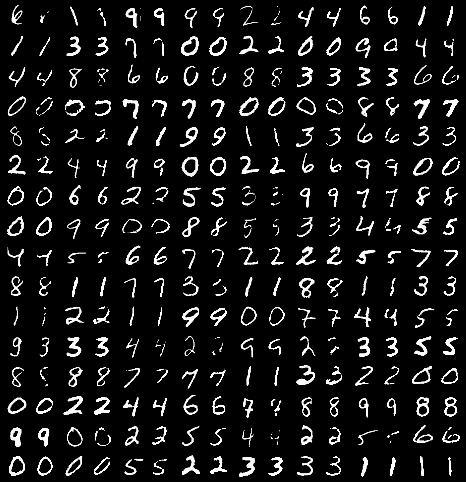 6 6 1 1 9 9 9 9 2 2 4 4 6 6 1 1
1 1 3 3 7 7 0 0 2 2 0 0 9 9 4 4
4 4 8 8 6 6 0 0 8 8 3 3 3 3 6 6
0 0 0 0 7 7 7 7 0 0 0 0 8 8 7 7
8 8 2 2 1 1 9 9 1 1 3 3 6 6 3 3
2 2 4 4 9 9 0 0 2 2 6 6 9 9 0 0
0 0 6 6 2 2 5 5 3 3 9 9 7 7 8 8
0 0 9 9 0 0 8 8 5 5 3 3 4 4 5 5
4 4 5 5 6 6 7 7 2 2 2 2 5 5 7 7
8 8 1 1 7 7 3 3 1 1 8 8 1 1 3 3
1 1 2 2 1 1 9 9 0 0 7 7 4 4 5 5
9 3 3 3 4 4 2 2 9 9 2 2 3 3 5 5
8 8 8 8 7 7 7 7 1 1 3 3 2 2 0 0
0 0 2 2 4 4 6 6 7 7 8 8 9 9 8 8
9 9 0 0 2 2 5 5 4 4 2 2 5 5 6 6
0 0 0 0 5 5 2 2 3 3 3 3 1 1 1 1